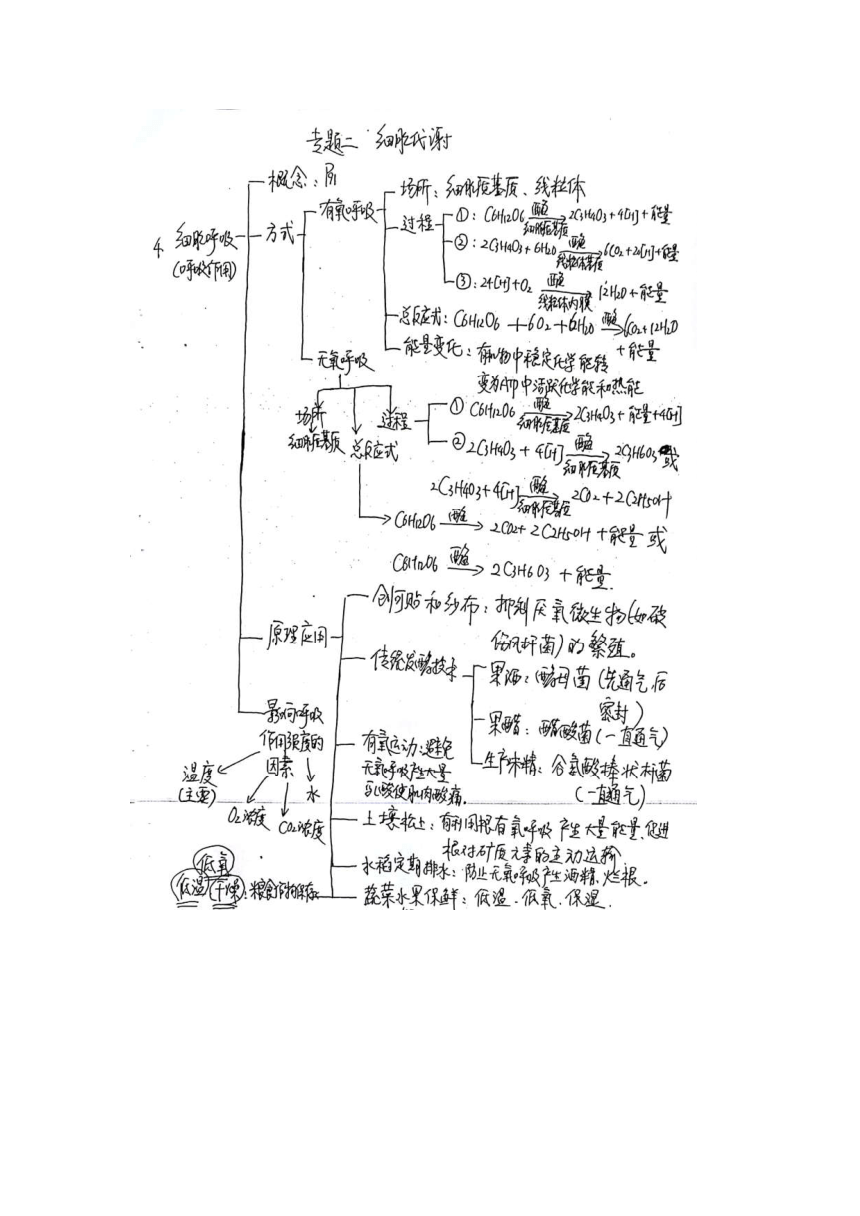 专题二 细胞代谢
概念:
场所：细胞质基质、线粒体
有氧呼吸
过程
①：C6H12O6 酶 细胞质基质 2C3H4O3+4[H]+能量
4. 细胞呼吸
(呼吸作用)
方式
②：2C3H4O3+6H2O 酶 线粒体基质 6CO2+20[H]+能量
③：24[H]+O2 酶 线粒体内膜 12H2O+能量
总反应式：C6H12O6+6O2+6H2O 酶 6CO2+12H2O
+能量
能量变化：有机物中稳定化学能转
变为ATP中活跃化学能和热能
无氧呼吸
场所
细胞质基质
总反应式
过程
① C6H12O6 酶 细胞质基质 2C3H4O3+能量+4[H]
② 2C3H4O3+4[H] 酶 细胞质基质 2C3H6O3 或
2C3H4O3+4[H] 酶 细胞质基质 2CO2+2C2H5OH
C6H12O6 酶 2CO2+2C2H5OH+能量 或
C6H12O6 酶 2C3H6O3+能量
原理应用
创可贴和纱布：抑制厌氧微生物(如破
伤风杆菌)的繁殖。
传统发酵技术
果酒：酵母菌(先通气后
密封)
果醋：醋酸菌(一直通气)
生产味精：谷氨酸棒状杆菌
(一直通气)
影响呼吸
作用强度的
因素
温度
(主要)
O2浓度
CO2浓度
水
有氧运动：避免
无氧呼吸产生大量
乳酸使肌肉酸痛.
土壤松土：有利用根有氧呼吸产生大量能量,促进
根对矿质元素的主动运输
水稻定期排水：防止无氧呼吸产生酒精,烂根。
低氧
低温 干燥：粮食作物保存
蔬菜水果保鲜：低温.低氧.保湿.